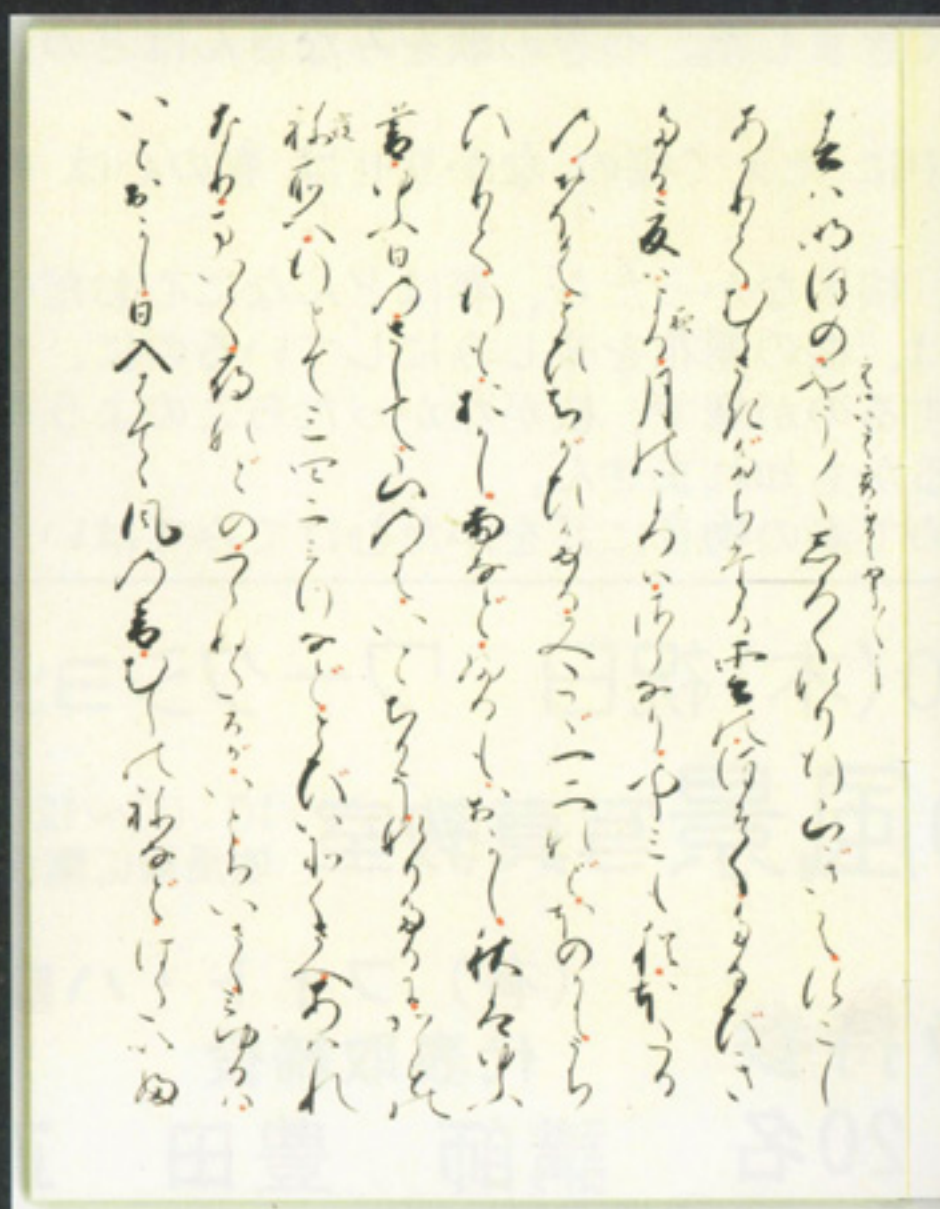 春はあけほのやう〱しろくなり行山ぎはすこし
あかりてむらさきだちたる雲のほそくたなびき
たる夏はよる月の比はさらなりやみも猶ほたる
のおほくとびちがひたる又たゞ一二などほのかにうち
ひかりて行もおかし雨などふるもおかし秋は夕
暮ゆふ日のさして山のはいとちかうなりたるにからすの
ね所へ行とて三四二みつなどとびいそくさへあはれ
なりまいて雁などのつらねたるがいとちいさくみゆるは
いとおかし日入はてゝ風の音むしのねなどはた